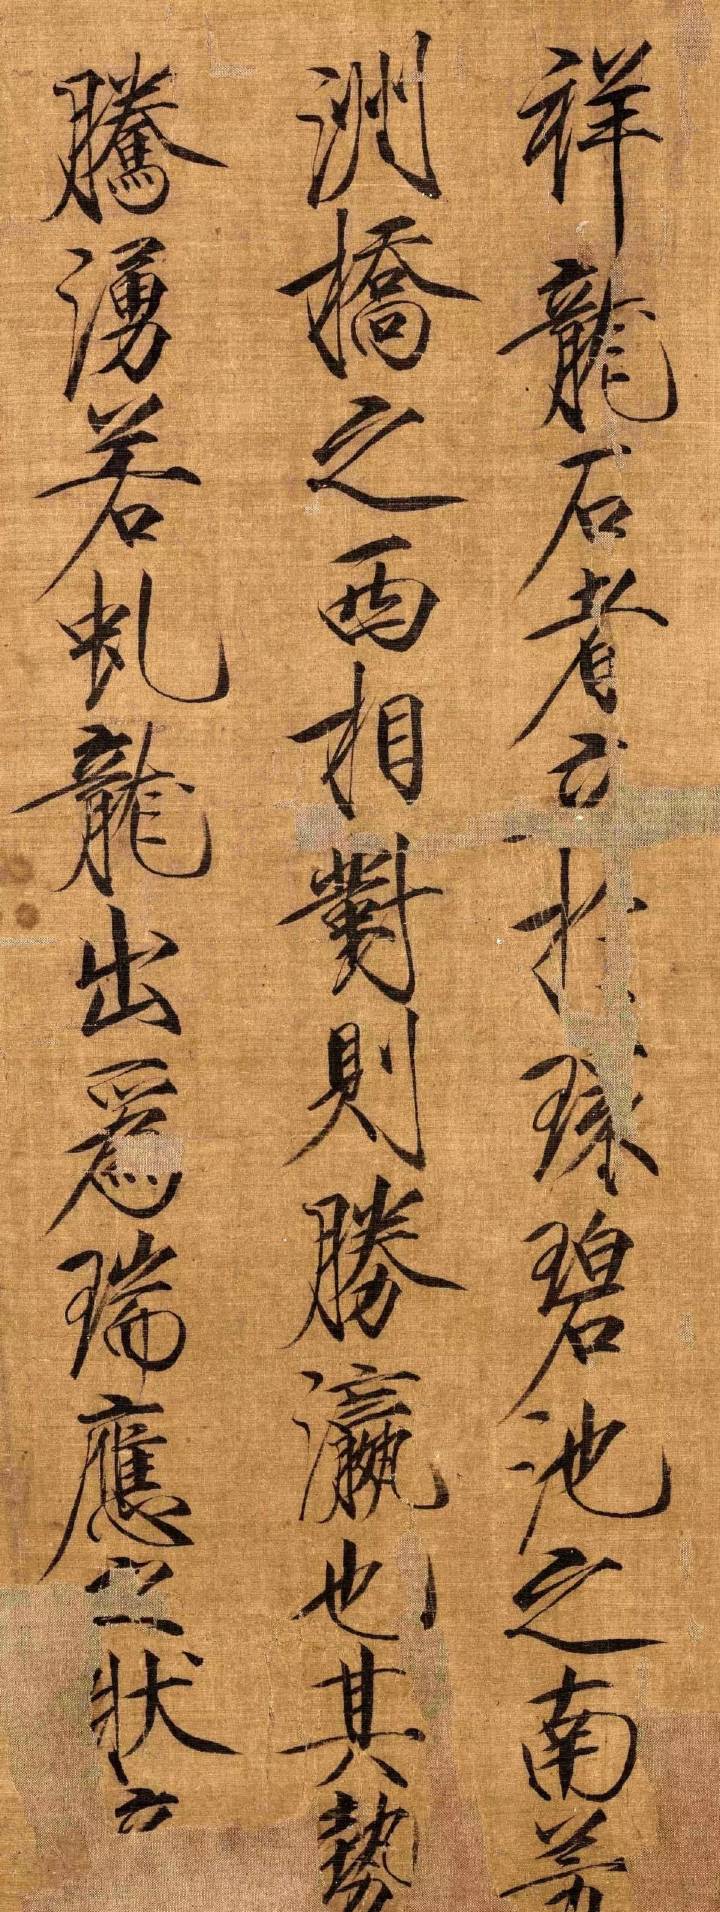 祥龍石者扵環碧池之南芳
洲橋之西相對則勝瀛也其勢
騰湧若虬龍出爲瑞應之狀